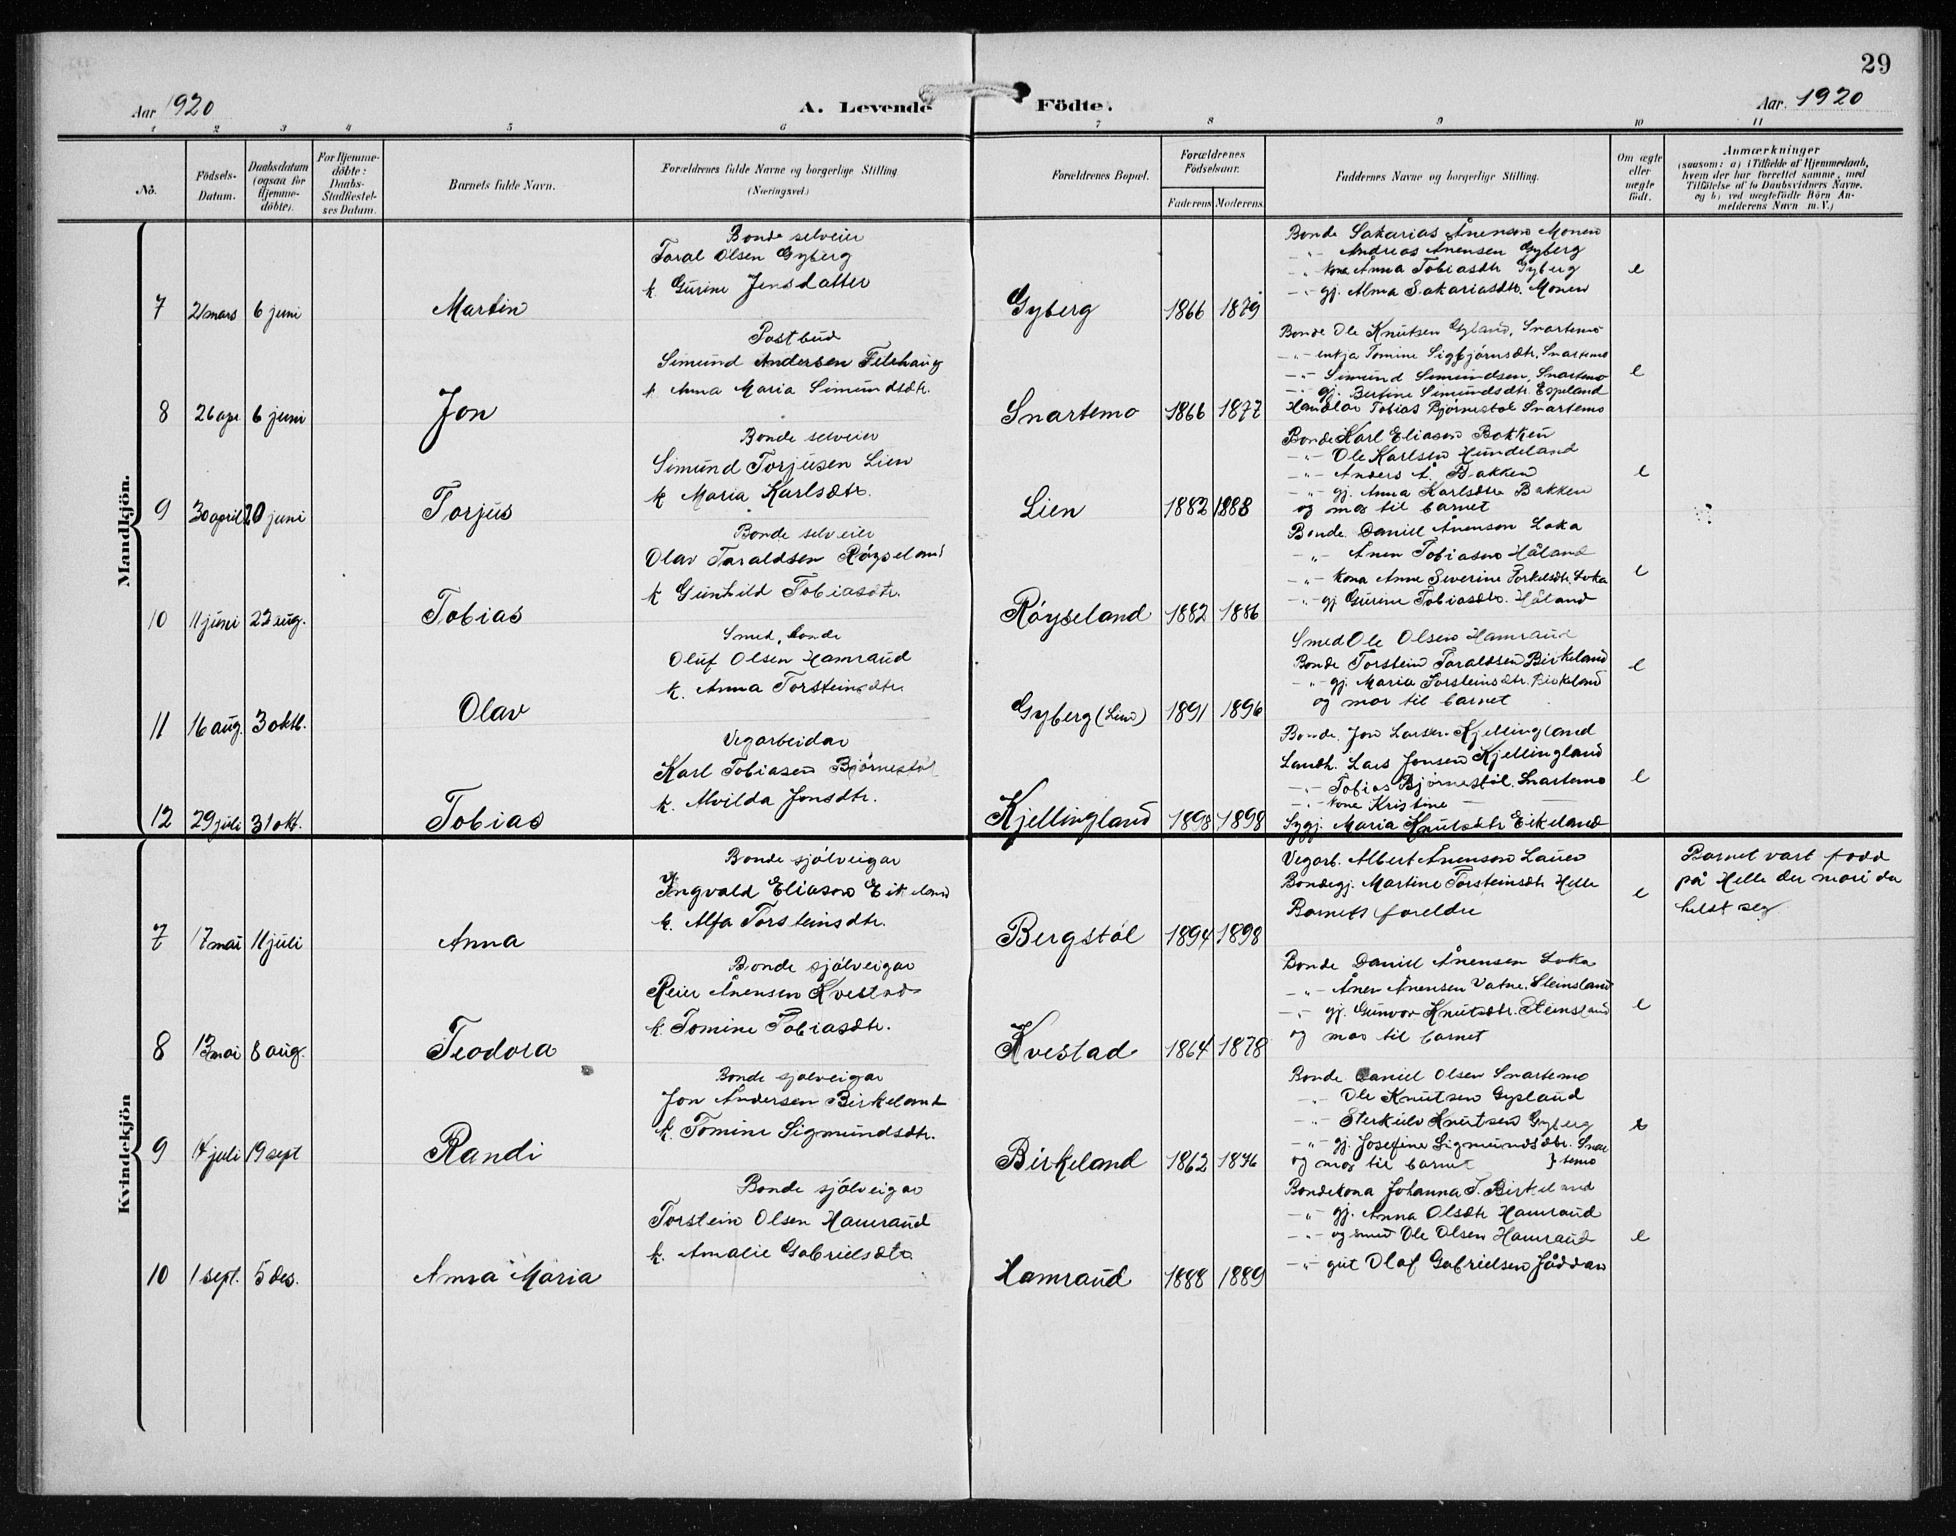 29
Aar 1920
A. Levende Födte.
Aar. 1920
1 2 3 4 5 6 7 8 9 10 11
No.
Födsels-Datum.
Daabsdatum (ogsaa for Hjemme-döbte).
For Hjemme-döbte: Daabs-Stadfæstel-ses Datum.
Barnets fulde Navn.
Forældrenes fulde Navne og borgerlige Stilling (Næringsvei.)
Forældrenes Bopæl.
Forældrenes Födselsaar.
Faderens Moderens
Faddernes Navne og borgerlige Stilling.
Om ægte eller uægte födt.
Anmærkninger
(saasom: a) i Tilfælde af Hjemmedaab, hvem der har forrettet samme, med Tilföielse af to Daabsvidners Navne. og b) ved uægtefödte Börn An-melderens Navn m. V.)
Mandkjön.
Bonde selveier
Taral Olsen Gyberg
k. Gurine Jensdatter
7 21 mars 6 juni Martin Gyberg 1866 1879
Bonde Sakarias Ånensen Monen
-"- Andreas Ånensen Gyberg
-"- kona Anna Tobiasdtr Gyberg e
-"- gj. Alma Sakariasdtr. Monen
Postbud
Simund Andersen Filehaug
k. Anna Maria Simundsdtr.
8 26 apr 6 juni Jon Snartemo 1866 1877
Bonde Ole Knutsen Gyland, Snartemo
-"- enkja Tomine Sigbjörnsdtr, Snartemo
-"- Simund Simundsen, Snartemo e
-"- gj. Bertine Simundsdtr. Espeland
Handlar Tobias Bjørnestøl Snartemo
Bonde selveier
Simund Torjusen Lien
k. Maria Karlsdtr.
9 30 april 20 juni Torjus Lien 1882 1888
Bonde Karl Eliasen Bakken
-"- Ole Karlsen Hundeland
-"- Anders Å. Bakken e
-"- gj. Anna Karlsdtr Bakken
og mor til barnet
Bonde selveier
Olav Taraldsen Röyseland
k Gunhild Tobiasdtr.
10 11 juni 22 aug. Tobias Röyseland 1882 1886
Bonde. Daniel Ånenson Loka
-"- Ånen Tobiasen Håland
-"- kona Anne Severine Terkelsdtr. Loka e
-"- gj Gurine Tobiasdtr. Håland
Smed, bonde
Oluf Olsen Hamraud
k. Anna Torsteinsdtr.
11 16 aug. 3 okt. Olav Gyberg (Lien) 1891 1896
Smed Ole Olsen Hamraud
Bonde Torstein Taraldsen Birkeland
-"- gj. Maria Torsteinsdtr. Birkeland e
og mor til barnet
Vegarbeidar
Karl Tobiasen Bjørnestøl
k. Alvilda Jonsdtr.
12 29 juli 31 okt. Tobias Kjellingland 1898 1898
Bonde. Jon Larsen Kjellingland
Landh. Lars Jonsen Kjellingland
-"- Tobias Bjørnestøl. Snartemo e
-"- kona Kristine — —
Sygj. Maria Knutsdtr Eikeland
Kvindekjön
Bonde sjölveigar
Yngvald Eliason Eikeland
k. Alfa Torsteinsdtr.
7 17 mai 11 juli Anna Bergstöl 1894 1898
Vegarb. Albert Ånenson Lauen
Bondegj. Martine Torsteinsdtr Helle
Barnets foreldre e
Barnet vart født
på Helle der mori da
heldt seg.
Bonde sjölveigar
Reier Ånensen Kvestad
k. Tomine Tobiasdtr.
8 13 mai 8 aug. Teodora Kvestad 1864 1878
Bonde Daniel Ånensen Loka
-"- Ånen Ånensen Vatne, Steinsland
-"- gj. Gunvor Knutsdtr. Steinsland e
og mor til barnet
Bonde sjolveigar
Jon Andersen Birkeland
k. Tomine Sigmundsdtr.
9 14 juli 19 sept Randi Birkeland 1862 1876
Bonde Daniel Olsen Snartemo
-"- Ole Knutsen Gysland
-"- Sterkulv Knutsen Gyberg e
-"- gj. Josefine Sigmundsdtr. Snar
og mor til barnet } temo
Bonde sjölveigar
Torstein Olsen Hamraud
k. Amalie Gabrielsdtr
10 1 sept. 5 des. Anna Maria Hamraud 1888 1889
Bondekona Johanna T. Birkeland
-"- gj. Anna Olsdtr Hamraud
-"- og smed Ole Olsen Hamraud e
-"- gut Olaf Gabrielsen Jåddan